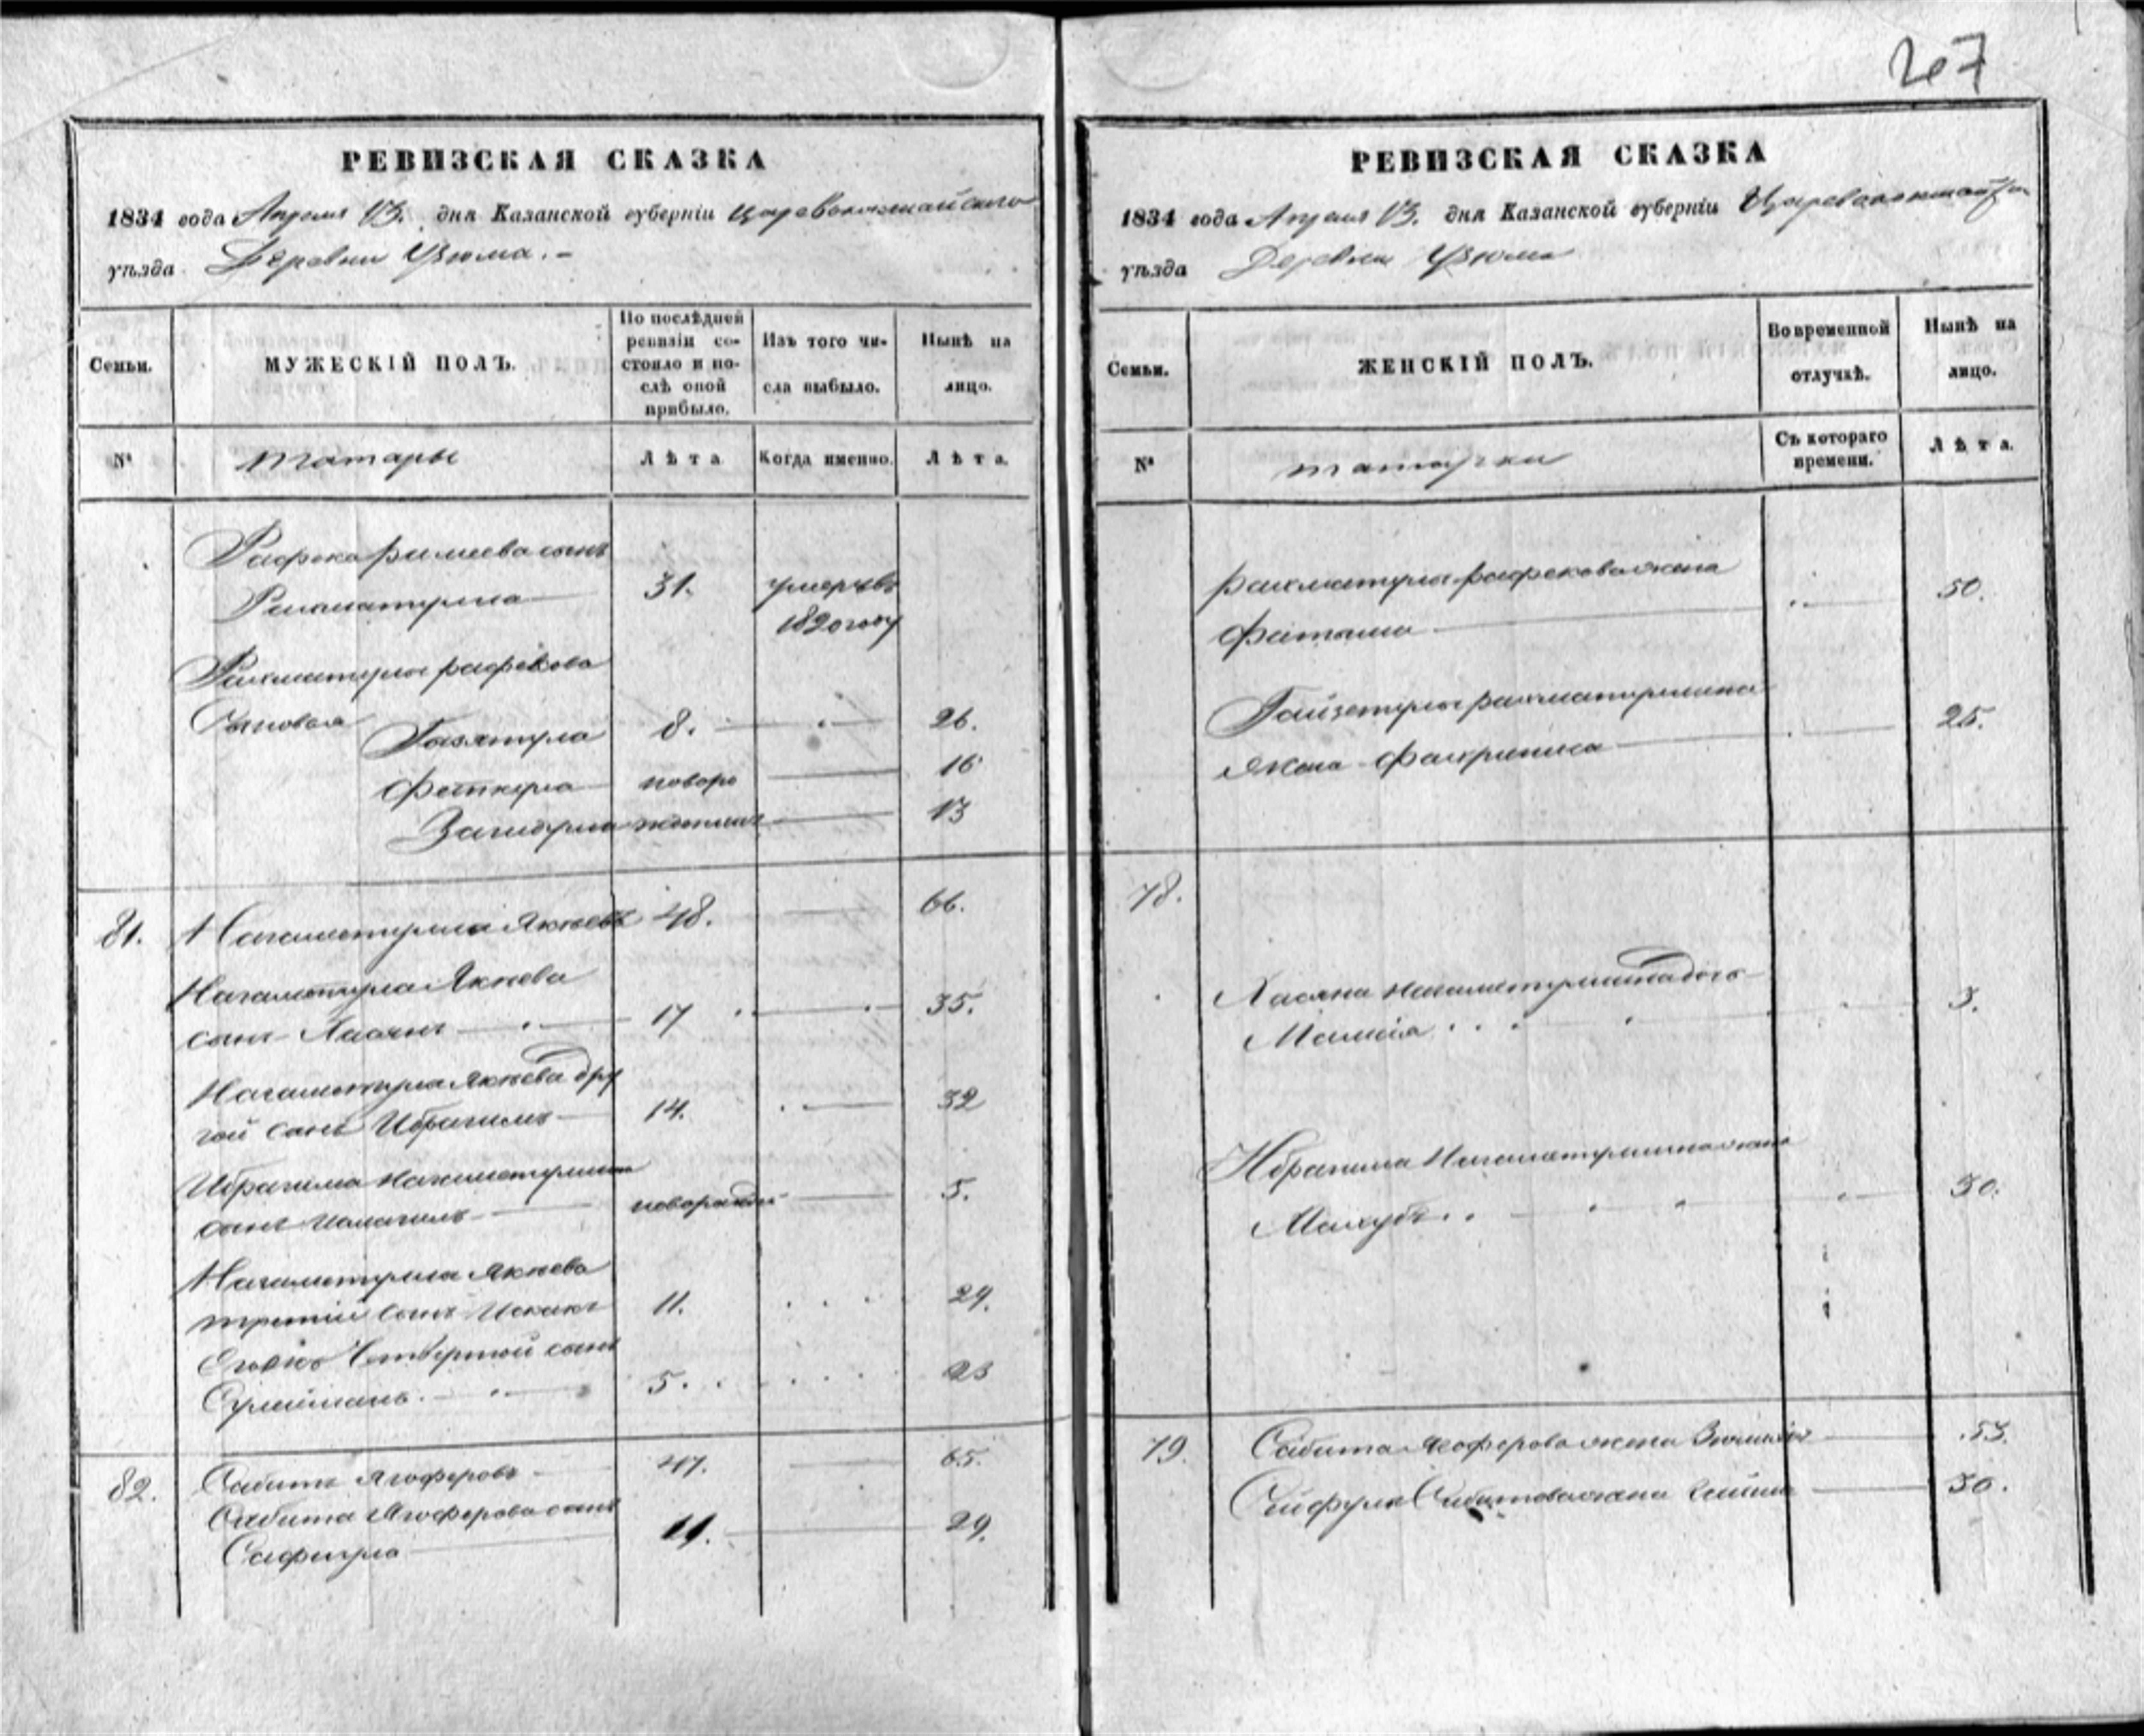 267
РЕВИЗСКАЯ СКАЗКА
1834 года Апреля 13. дня Казанской губерніи Царевококшайского
уѣзда Деревни Узюма. –
Семьи.
МУЖЕСКІЙ ПОЛЪ.
По послѣдней ревизіи состояло и послѣ оной прибыло.
Изъ того числа выбыло.
Нынѣ на лицо.
№
татары
Лѣта
Когда именно.
Лѣта.
Рафека Рамеева сынъ
Рахматулла 31. умеръ въ
1820 году
Рахматуллы рафекова
Сыновья Гаязтулла 8. 26.
Феткулла новоро 16
Загидулла жденныя 13
81. Нагаметулла Якѣевъ 48. 66.
Нагаметулла Якѣева
сынъ Хасянъ 17 35.
Нагаметулла Якѣева дру
гой сынъ Ибрагимъ 14. 32
Ибрагима Нагаметуллина
сынъ Исмагилъ новорожден 5.
Нагаметулла Якѣева
третій сынъ Исхакъ 11. 29.
Его же Четвертой сынъ
Сулейманъ. 5. 23
82. Сабитъ Ягоферовъ 47. 65.
Сабита Ягоферова сынъ
Сафиулла 11. 29.
РЕВИЗСКАЯ СКАЗКА
1834 года Апреля 13. дня Казанской губерніи
уѣзда Деревни Узюма
Семьи.
ЖЕНСКІЙ ПОЛЪ.
Во временной отлучкѣ.
Нынѣ на лицо.
№
татарки
Съ котораго времени.
Лѣта.
Рахматуллы рафекова жена
Фатыма 50.
Гайзетуллы рахматуллина
жена Фахриниса 25.
78.
Хасяна Нагаметуллина дочь
3.
Ибрагима Нагаметуллина жена
Махубъ 30.
79. Сабита Ягоферова жена 53.
Сабитова жена 30.